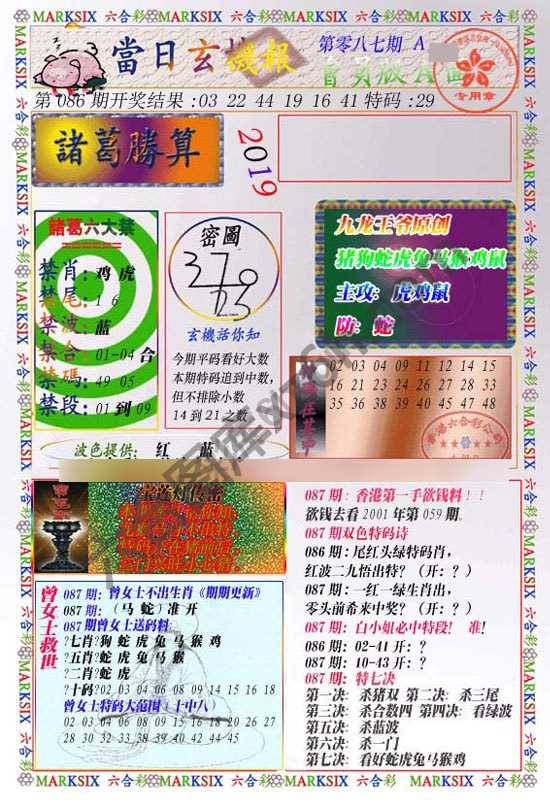 MARKSIX 六合彩 MARKSIX 六合彩 MARKSIX 六合彩 MARKSIX 六合彩
當日玄機報
第零八七期 A
會員版A面
专用章
第 086 期开奖结果 : 03 22 44 19 16 41 特码 : 29
諸葛勝算
2019
諸葛六大禁
禁肖 : 鸡 虎
禁尾 : 1 6
禁波 : 蓝
禁合 : 01-04 合
禁碼 : 49 05
禁段 : 01 到 09
密圖
玄機話你知
今期平码看好大数
本期特码追到中数,
但不排除小数
14 到 21 之数
九龙王爷原创
猪狗蛇虎兔马猴鸡鼠
主攻: 虎鸡鼠
防: 蛇
02 03 04 09 11 12 14 15
16 21 23 24 26 27 28 33
35 36 38 39 40 45 47 48
波色提供: 红 蓝
087 期 : 曾女士不出生肖《期期更新》
087 期 : (马 蛇) 准 开
087 期曾女士送码料:
?七肖? 狗 蛇 虎 兔 马 猴 鸡
?五肖? 蛇 虎 兔 马 猴
?二肖? 蛇 虎
?十码? 02 03 04 06 08 09 14 15 16 18
曾女士特码大范围 (十中八)
02 03 04 06 08 09 15 16 18 20 26 27
28 30 32 33 38 39 40 42 44 45
曾女士救世
087 期 : 香港第一手欲钱料 ! !
欲钱去看 2001 年第 059 期.
087 期双色特码诗
086 期 : 尾红头绿特码肖,
红波二九悟出特? (开: ? )
087 期 : 一红一绿生肖出,
零头前希来中奖? (开: ? )
087 期 : 白小姐必中特段! 准!
086 期 : 02-41 开 : ?
087 期 : 10-43 开 : ?
087 期 : 特七决
第一决: 杀猪双 第二决: 杀三尾
第三决: 杀合数四 第四决: 看绿波
第五决: 杀蓝波
第六决: 杀一门
第七决: 看好蛇虎兔马猴鸡
MARKSIX 六合彩 MARKSIX 六合彩 MARKSIX 六合彩 MARKSIX 六合彩